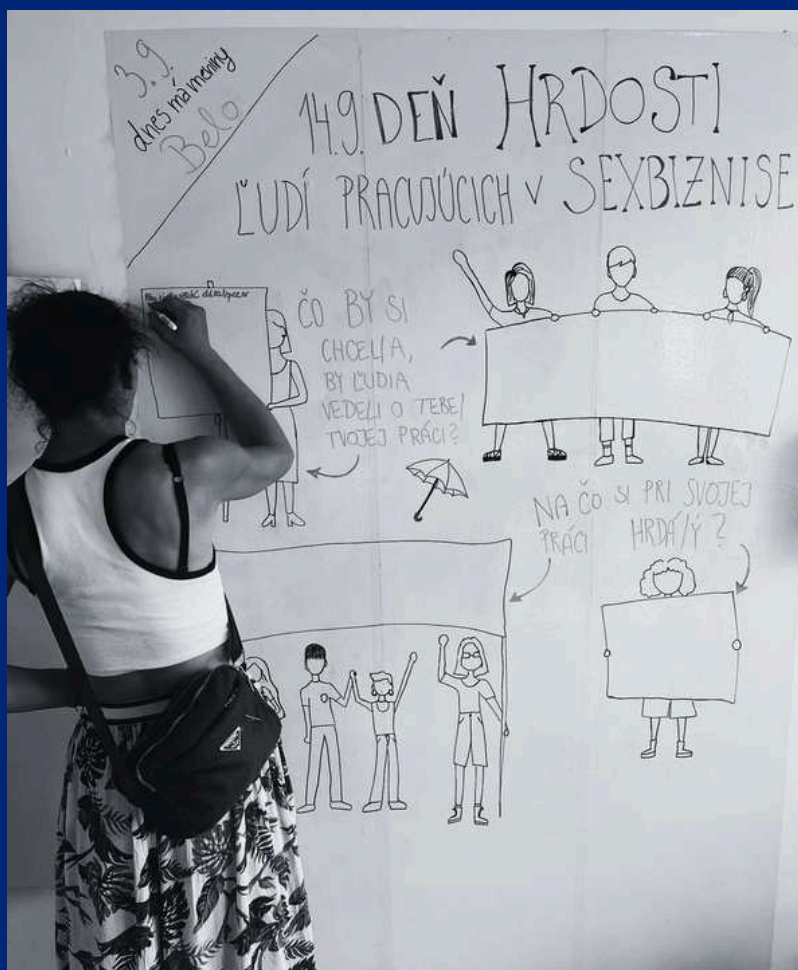 3.9.
dnes má meniny
Belo
14.9. DEŇ HRDOSTI
ĽUDÍ PRACUJÚCICH V SEXBIZNISE
ČO BY SI
CHCEL/A,
BY ĽUDIA
VEDELI O TEBE/
TVOJEJ PRÁCI?
NA ČO SI PRI SVOJEJ
PRÁCI HRDÁ/Ý?